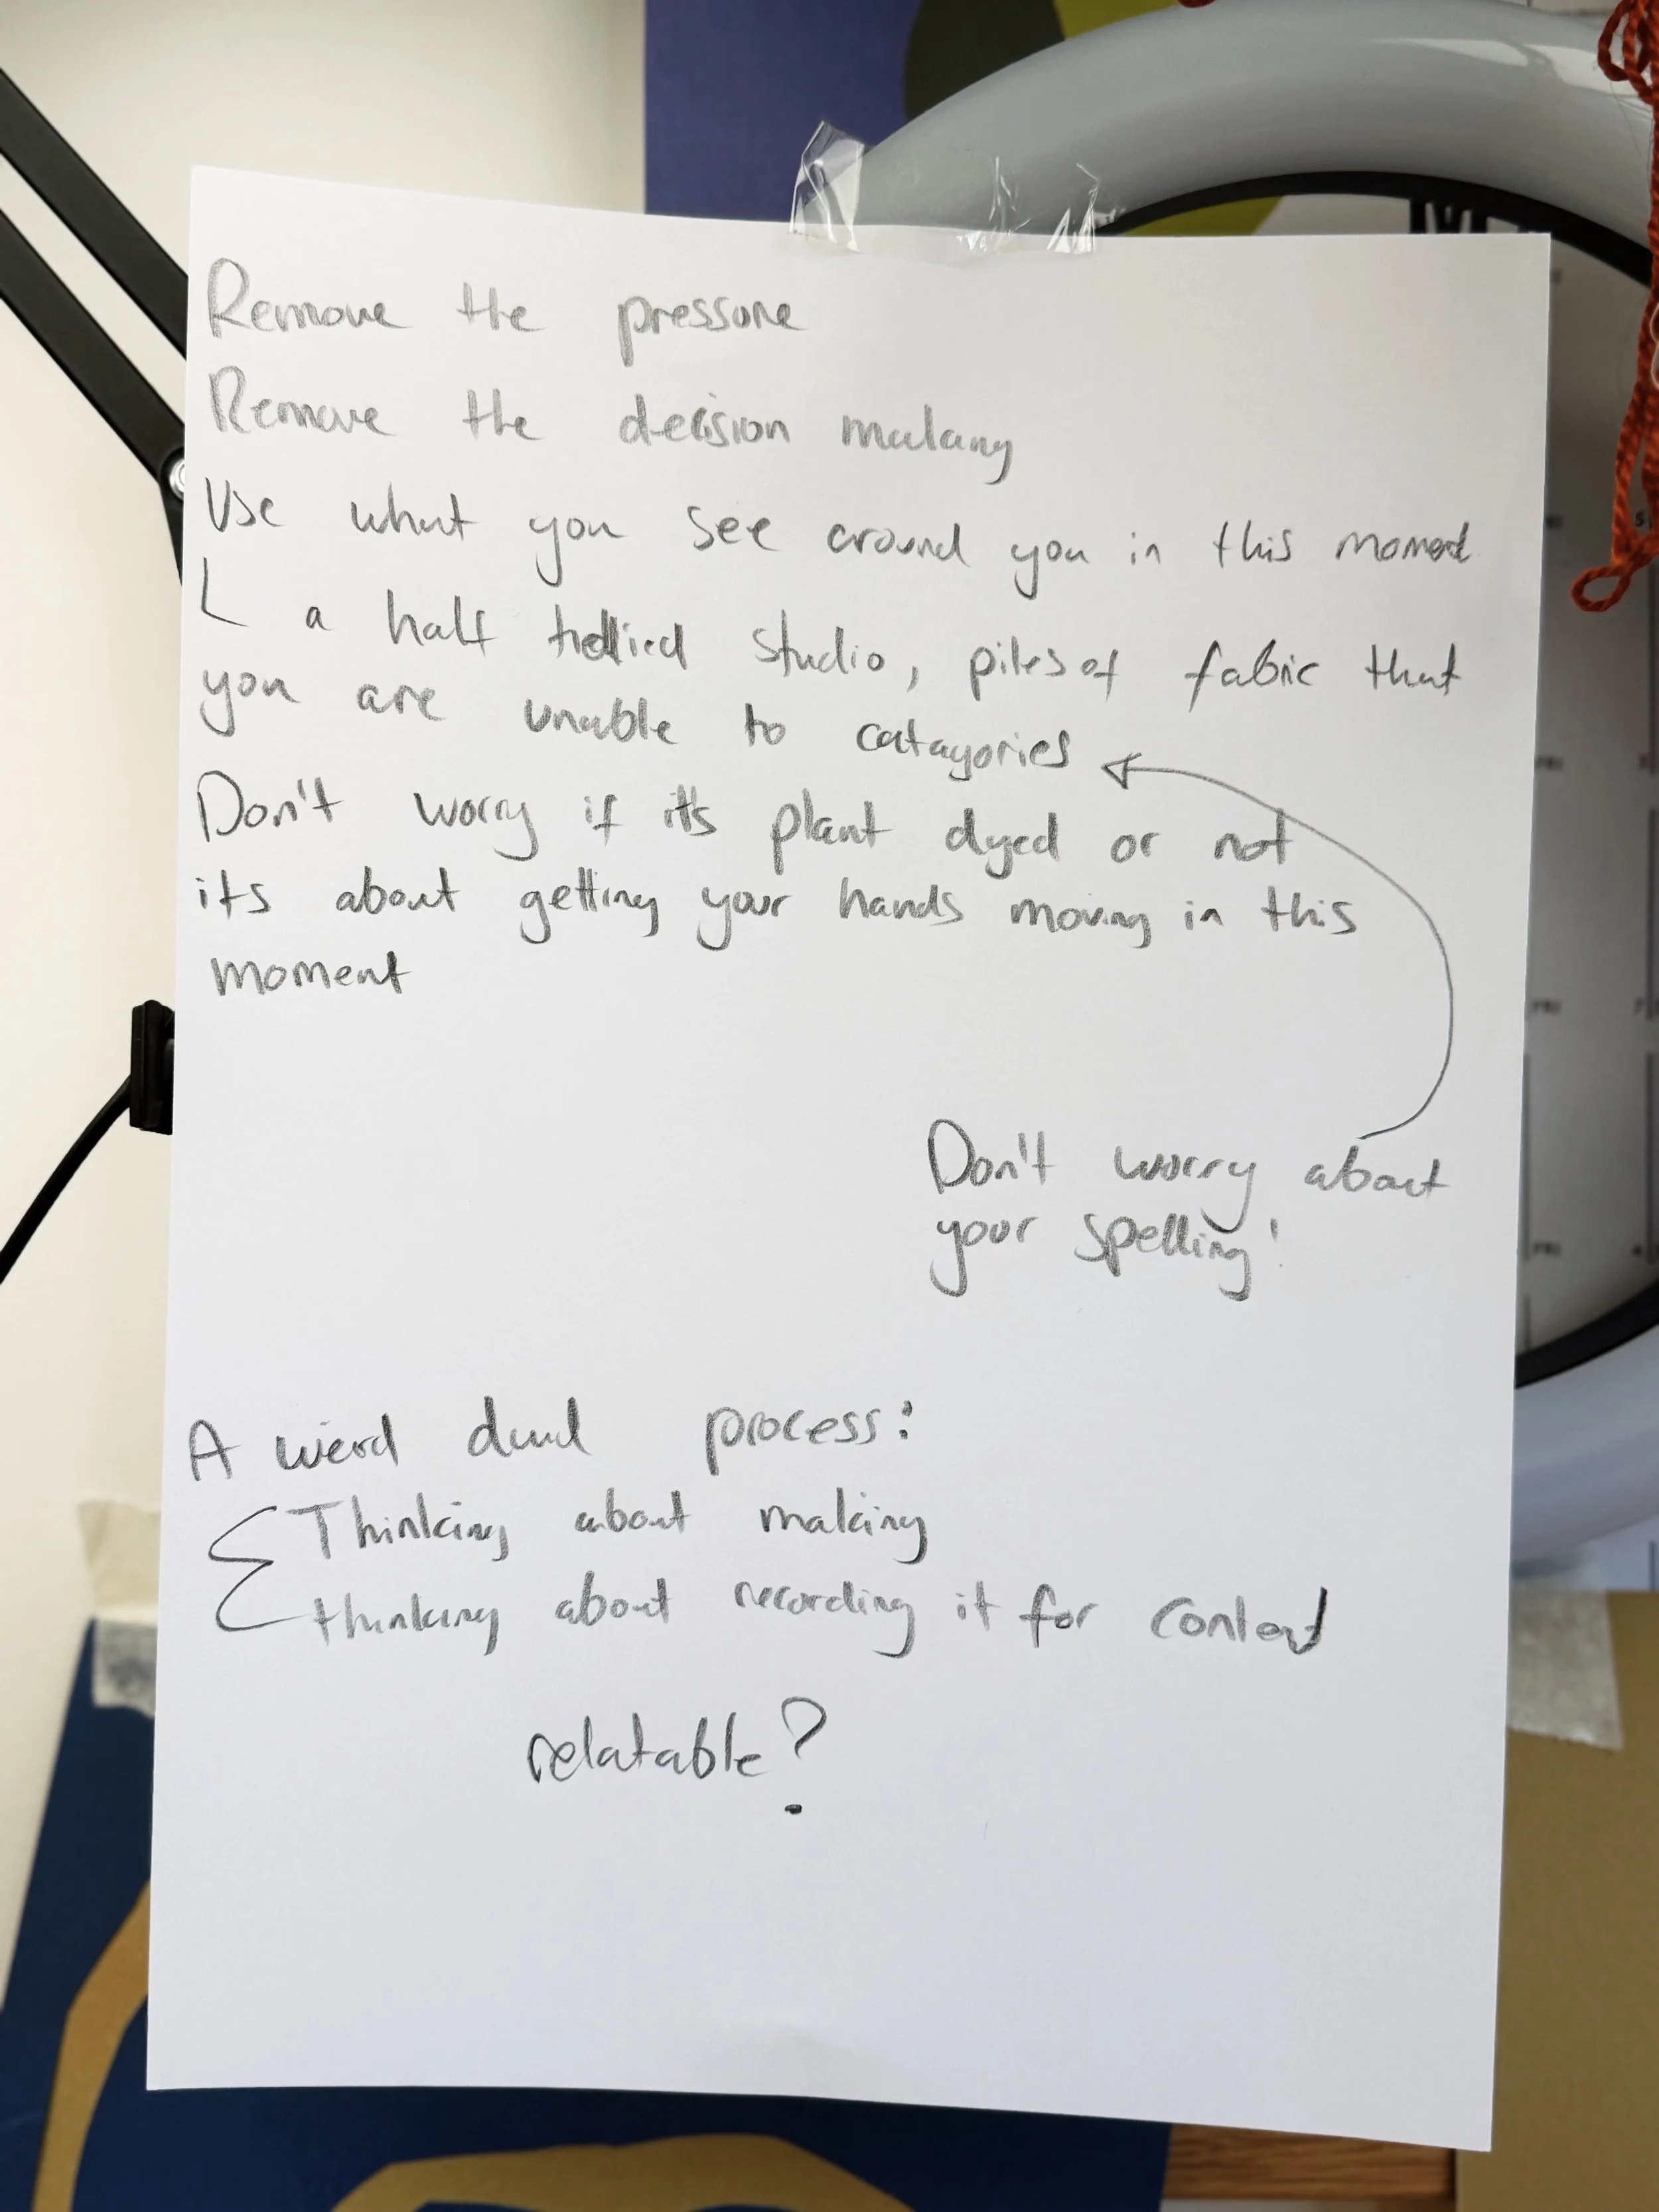 Remove the pressure
Remove the decision making
Use what you see around you in this moment
a half tidied studio, piles of fabric that
you are unable to catagories
Don't worry if it's plant dyed or not
its about getting your hands moving in this
moment
Don't worry about
your spelling!
A weird dual process:
Thinking about making
thinking about recording it for content
relatable?
FRI
FRI
FRI